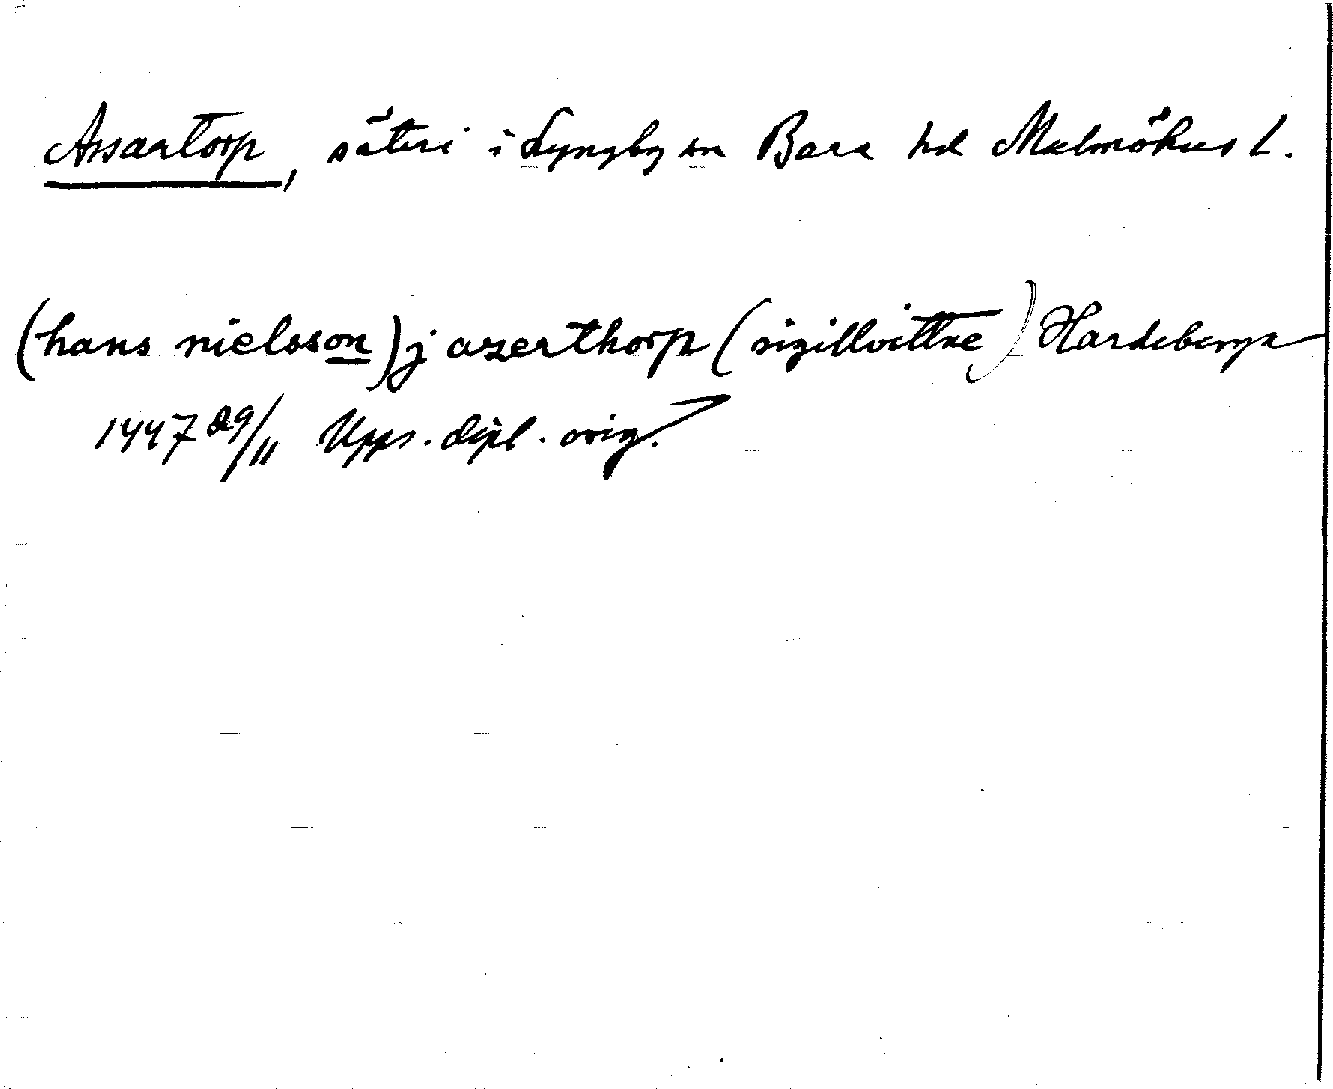 Assartorp, säteri i Lyngby sn Bara hd Malmöhus l.
(hans nielsson) j azerthorp (sigillvittne) Hardeberga
1447 29/11 Upps. dipl. orig.